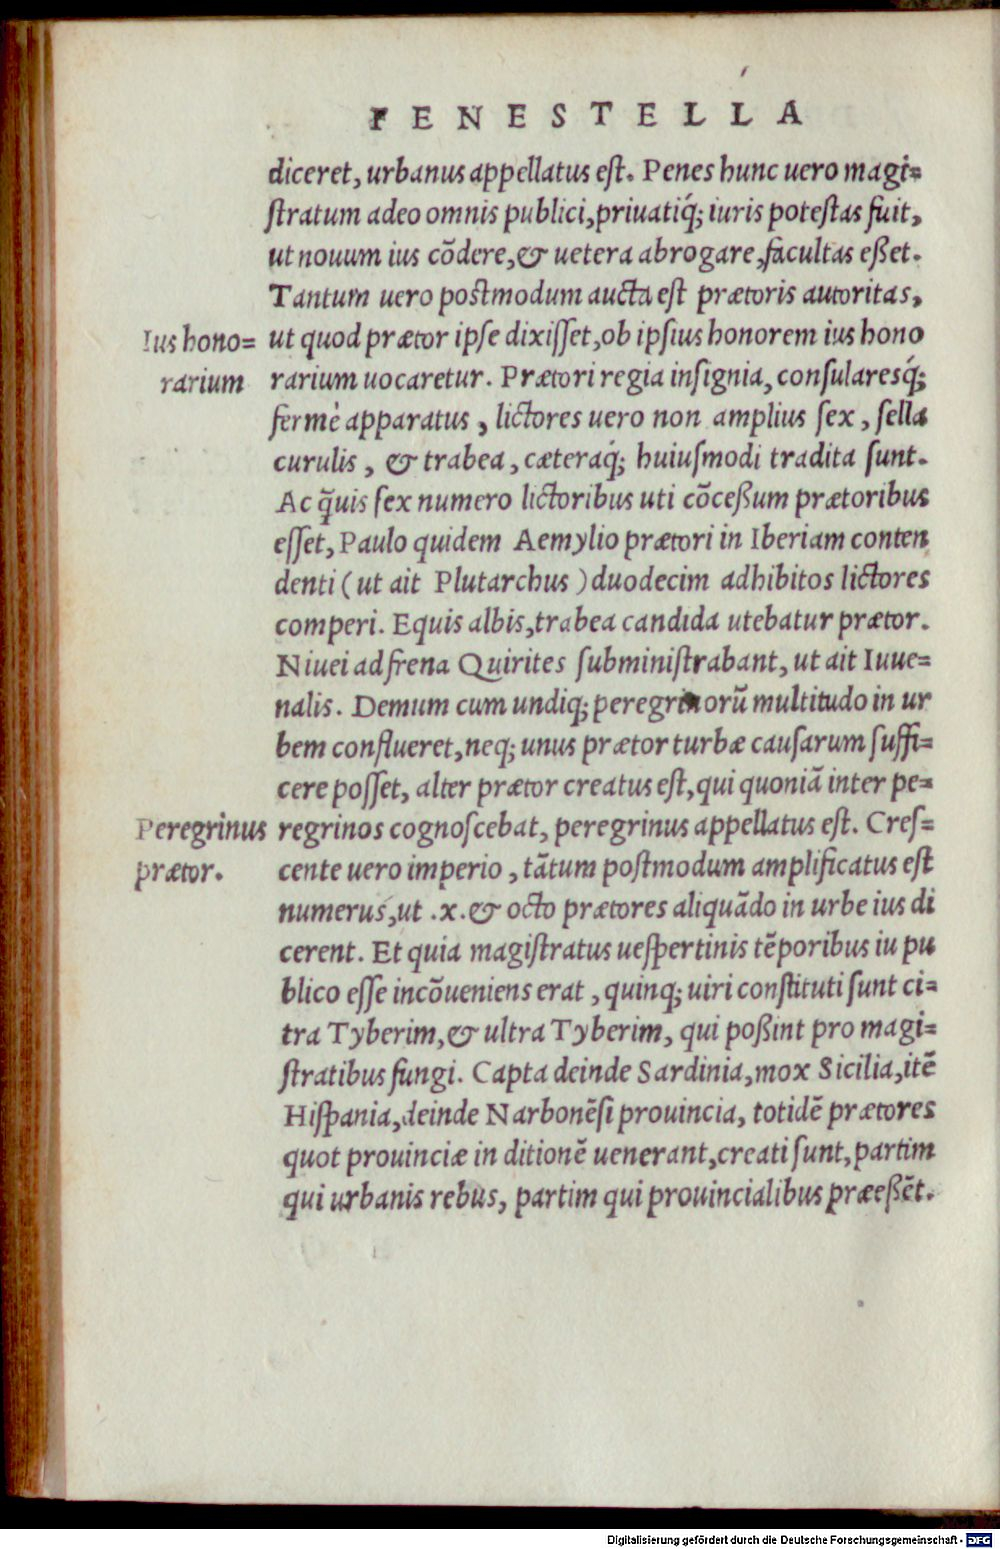 FENESTELLA
diceret, urbanus appellatus eſt. Penes hunc uero magi=
ſtratum adeo omnis publici, priuatiq́; iuris poteſtas fuit,
ut nouum ius cõdere, & uetera abrogare, facultas eßet.
Tantum uero poſtmodum aucta eſt prætoris autoritas,
Ius hono= ut quod prætor ipſe dixiſſet, ob ipſius honorem ius hono
rarium rarium uocaretur. Prætori regia inſignia, conſulareſq́;
fermè apparatus, lictores uero non amplius ſex, ſella
curulis, & trabea, cæteraq́; huiuſmodi tradita ſunt.
Ac q̃uis ſex numero lictoribus uti cõceßum prætoribus
eſſet, Paulo quidem Aemylio prætori in Iberiam conten
denti (ut ait Plutarchus) duodecim adhibitos lictores
comperi. Equis albis, trabea candida utebatur prætor.
Niuei ad frena Quirites ſubminiſtrabant, ut ait Iuue=
nalis. Demum cum undiq; peregrinorũ multitudo in ur
bem conflueret, neq; unus prætor turbæ cauſarum ſuffi=
cere poſſet, alter prætor creatus eſt, qui quoniã inter pe=
Peregrinus regrinos cognoſcebat, peregrinus appellatus eſt. Creſ=
prætor. cente uero imperio, tãtum poſtmodum amplificatus eſt
numerus, ut .x. & octo prætores aliquãdo in urbe ius di
cerent. Et quia magiſtratus ueſpertinis tẽporibus iu pu
blico eſſe incõueniens erat, quinq; uiri conſtituti ſunt ci=
tra Tyberim, & ultra Tyberim, qui poßint pro magi=
ſtratibus fungi. Capta deinde Sardinia, mox Sicilia, itẽ
Hiſpania, deinde Narbonẽſi prouincia, totidẽ prætores
quot prouinciæ in ditionẽ uenerant, creati ſunt, partim
qui urbanis rebus, partim qui prouincialibus præeßẽt.
Digitalisierung gefördert durch die Deutsche Forschungsgemeinschaft - DFG